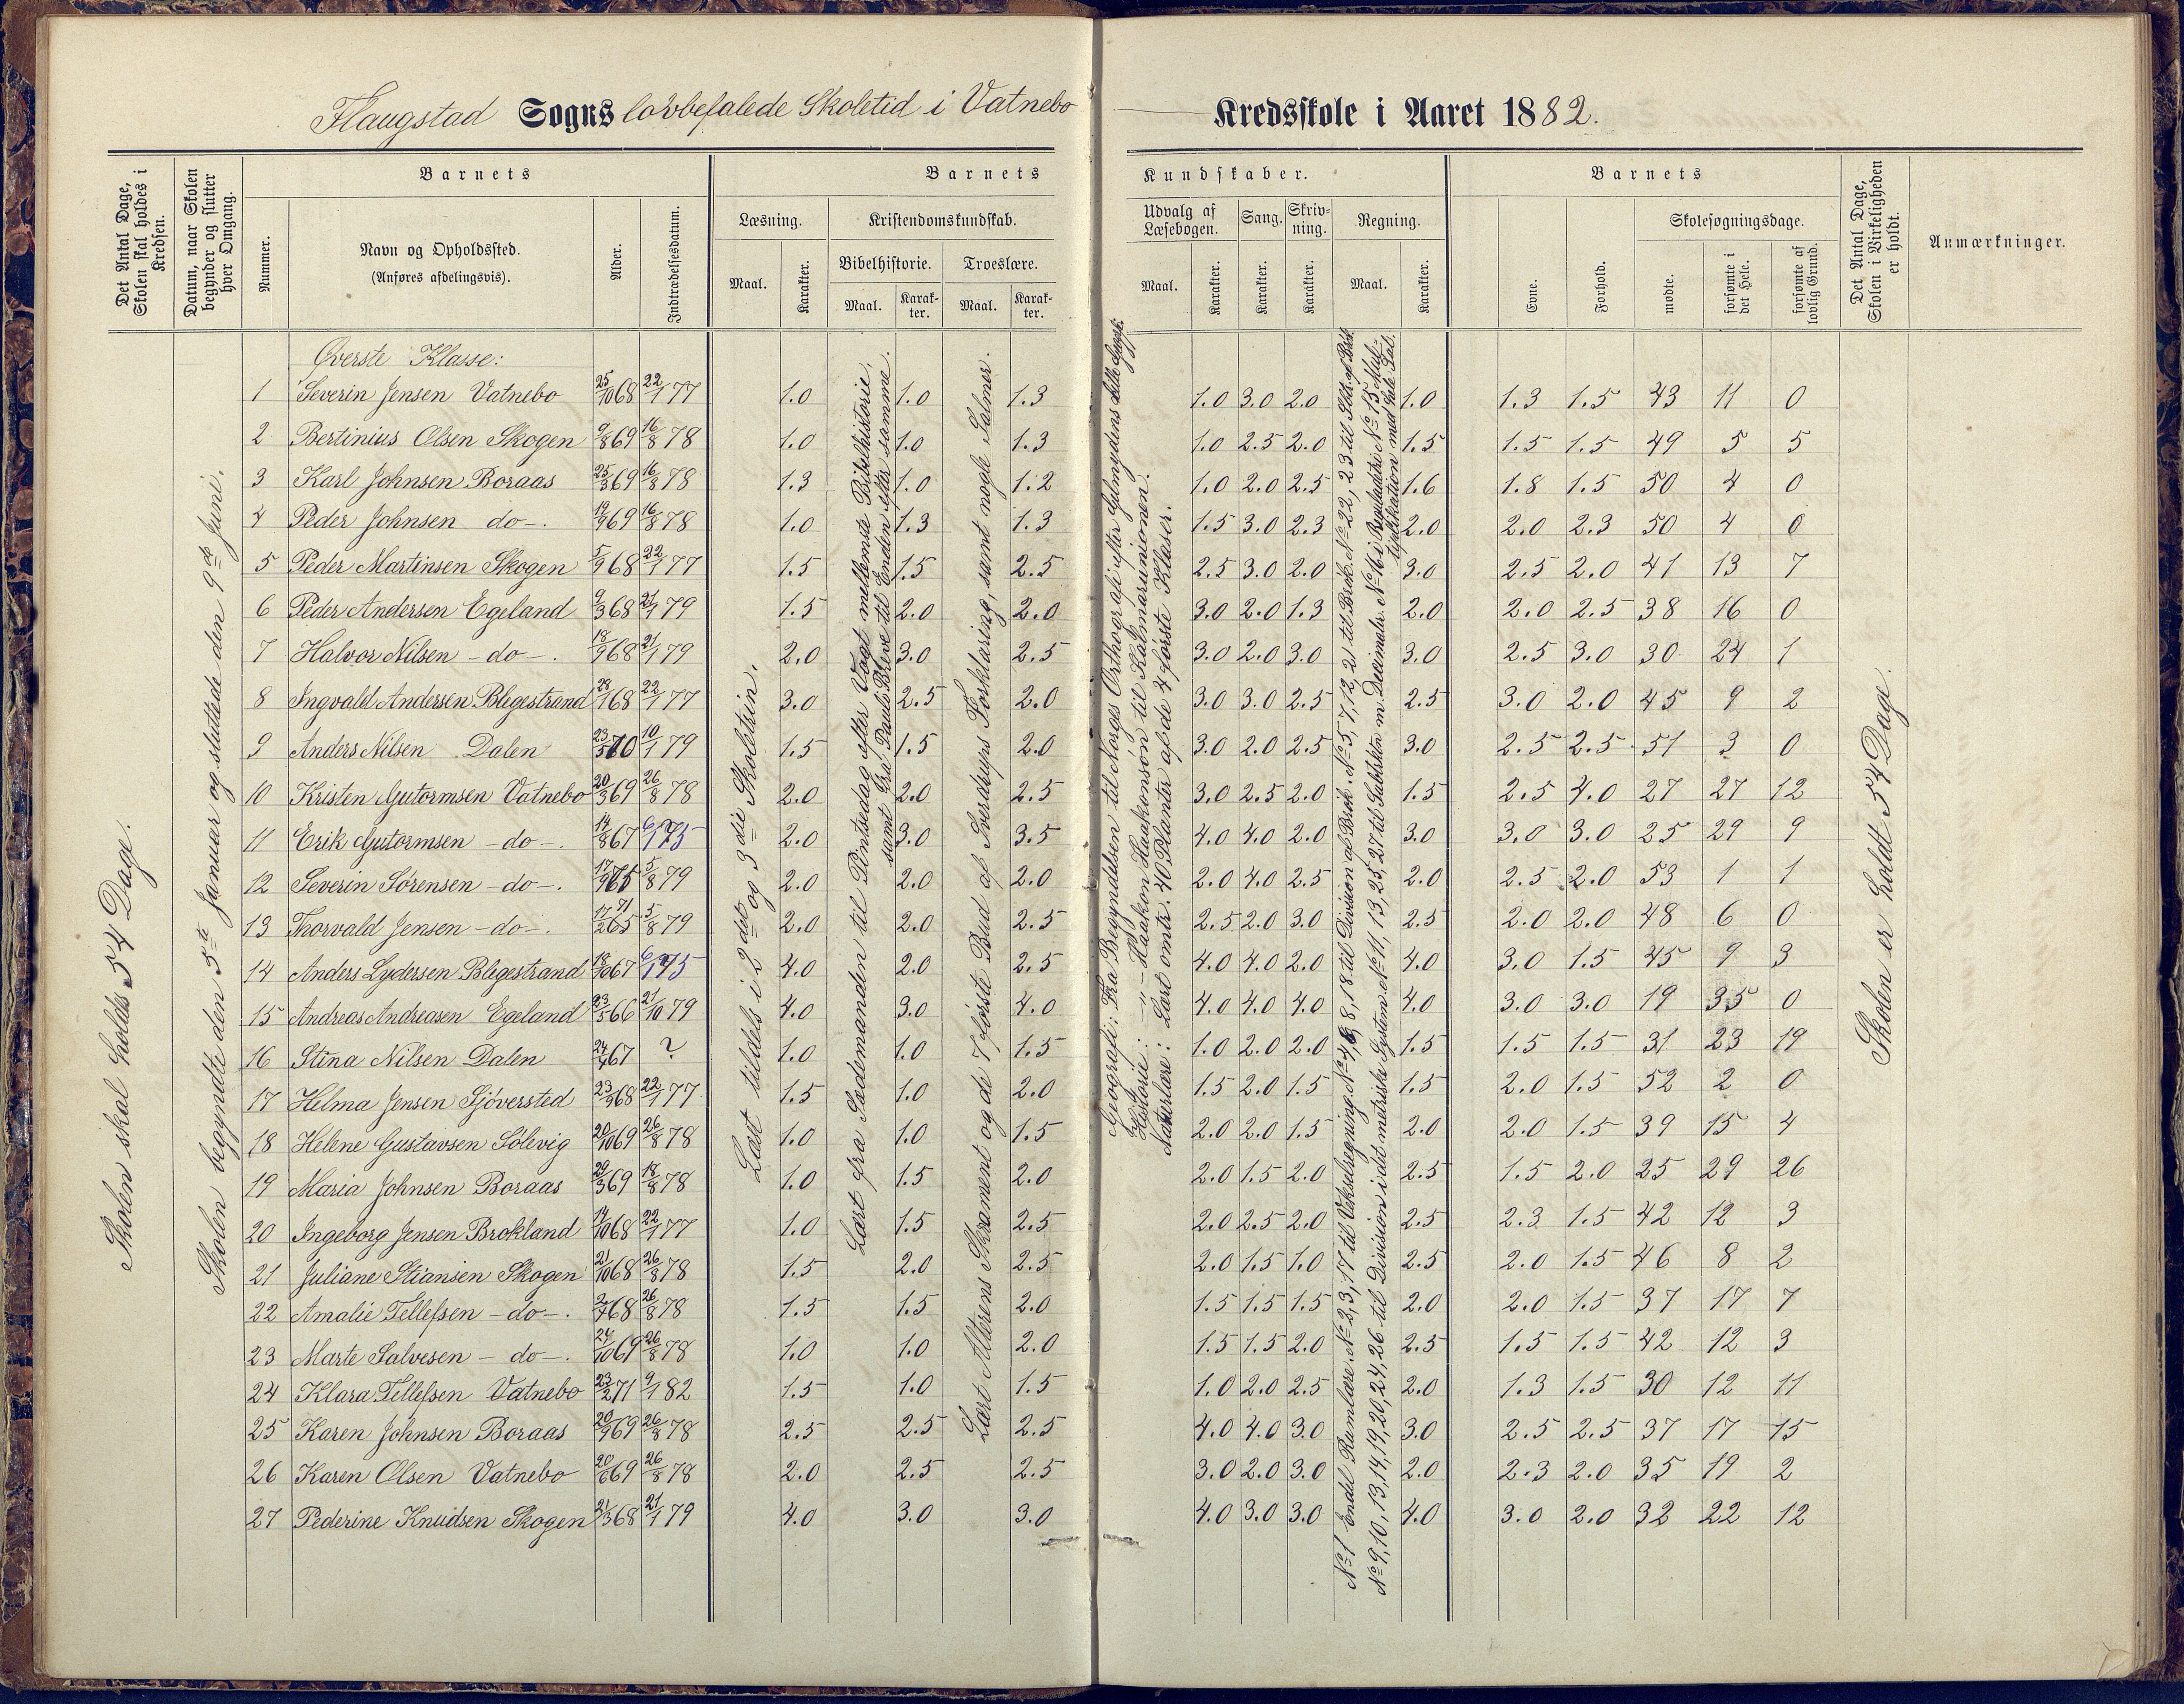 Flaugstad Sogns lovbefalede Skoletid i Vatnebo Kredsskole i Aaret 1882.
Det Antal Dage, Skolen skal holdes i Kredsen.
Datum, naar Skolen begynder og slutter hver Omgang.
Barnets
Nummer.
Navn og Opholdssted.
(Anføres afdelingsvis).
Alder.
Indtrædelsesdatum.
Barnets Kundskaber.
Læsning.
Maal. Karakter.
Kristendomskundskab.
Bibelhistorie. Troeslære.
Maal. Karakter. Maal. Karakter.
Udvalg af Læsebogen.
Maal. Karakter.
Sang.
Karakter.
Skrivning.
Karakter.
Regning.
Maal. Karakter.
Barnets
Evne. Forhold.
Skolesøgningsdage.
mødte. forsømte i det Hele. forsømte af lovlig Grund.
Det Antal Dage, Skolen i Virkeligheden er holdt.
Anmærkninger.
Skolen skal holdes 54 Dage.
Skolen begyndte den 5te Januar og sluttede den 9de Juni.
Øverste Klasse:
1 Severin Jensen Vatnebo 25/10 68 22/1 77 1.0 1.0 1.3 1.0 3.0 2.0 1.0 1.3 1.5 43 11 0
2 Bertinius Olsen Skogen 9/8 69 16/8 78 1.0 1.0 1.3 1.0 2.5 2.0 1.5 1.5 1.5 49 5 5
3 Karl Johnsen Boraas 25/3 69 16/8 78 1.3 1.0 1.2 1.0 2.0 2.5 1.6 1.8 1.5 50 4 0
4 Peder Johnsen do. 14/9 69 16/8 78 1.0 1.3 1.3 1.5 3.0 2.3 2.0 2.0 2.3 50 4 0
5 Peder Martinsen Skogen 5/9 68 22/1 77 1.5 1.5 2.5 2.5 3.0 2.0 3.0 2.5 2.0 41 13 7
6 Peder Andersen Egeland 9/3 68 21/1 79 1.5 2.0 2.0 3.0 2.0 1.3 2.0 2.0 2.5 38 16 0
7 Halvor Nilsen - do -. 18/9 68 21/1 79 2.0 3.0 2.5 3.0 2.0 3.0 3.0 2.5 3.0 30 24 1
8 Ingvald Andersen Blegestrand 28/1 68 22/1 77 3.0 2.5 2.0 3.0 3.0 2.5 2.5 3.0 2.0 45 9 2
9 Anders Nilsen Dalen 23/5 70 10/1 79 1.5 1.5 2.0 3.0 2.0 2.5 3.0 2.5 2.5 51 3 0
10 Kristen Gutormsen Vatnebo 20/3 69 26/8 78 2.0 2.0 2.5 3.0 2.5 2.0 1.5 2.5 4.0 27 27 12
11 Erik Gutormsen - do -. 14/8 67 75 2.0 3.0 3.5 4.0 4.0 2.0 3.0 3.0 3.0 25 29 9
12 Severin Sørensen - do -. 5/8 79 2.0 2.0 2.0 2.0 4.0 2.5 2.0 2.5 2.0 53 1 1
13 Thorvald Jensen - do -. 5/8 79 2.0 2.0 2.5 2.5 2.0 3.0 2.5 2.0 2.0 48 6 0
14 Anders Lydersen Blegestrand 18/10 67 75 4.0 2.0 2.5 4.0 4.0 2.0 4.0 3.0 1.5 45 9 3
15 Andreas Andreasen Egeland 23/5 66 21/10 79 4.0 3.0 4.0 4.0 4.0 4.0 4.0 3.0 3.0 19 35 0
16 Stina Nilsen Dalen 24/4 67 ? 1.0 1.0 1.5 1.0 2.0 2.0 1.5 1.5 1.5 31 23 19
17 Helma Jensen Sjöversted 23/9 68 22/1 77 1.5 1.0 2.0 1.5 2.0 1.5 1.5 2.0 1.5 52 2 0
18 Helene Gustavsen Sölevig 20/10 69 26/8 78 1.0 1.0 1.5 2.0 2.0 1.5 2.0 2.0 1.5 39 15 4
19 Maria Johnsen Boraas 29/3 69 18/8 78 1.0 1.5 2.0 2.0 1.5 2.0 2.5 1.5 2.0 25 29 26
20 Ingeborg Jensen Brokland 14/10 68 22/1 77 1.0 1.5 2.5 2.0 2.5 2.0 2.5 2.3 1.5 42 12 3
21 Juliane Stiansen Skogen 21/10 68 26/8 78 1.5 2.0 2.5 2.0 1.5 1.0 2.5 2.0 1.5 46 8 2
22 Amalie Tellefsen - do -. 2/7 68 26/8 78 1.5 1.5 2.0 1.5 1.5 1.5 2.0 2.0 1.5 37 17 7
23 Marte Salvesen - do -. 24/10 69 26/8 78 1.0 1.0 2.0 1.5 1.5 2.0 2.5 1.5 1.5 42 12 3
24 Klara Tellefsen Vatnebo 23/2 71 9/1 82 1.5 1.0 1.5 1.0 2.0 2.5 2.0 1.3 1.5 30 12 11
25 Karen Johnsen Boraas 20/9 69 26/8 78 2.5 2.5 2.5 4.0 4.0 3.0 3.0 2.5 2.5 37 17 15
26 Karen Olsen Vatnebo 20/6 69 26/8 78 2.0 2.5 2.5 3.0 2.0 3.0 2.0 2.3 2.0 35 19 2
27 Pederine Knudsen Skogen 21/3 68 21/1 79 4.0 3.0 3.0 4.0 3.0 3.0 4.0 3.0 2.0 32 22 12
Læst tildels i 2det og 3die Skoletrin.
Lært fra Sædemanden til Pintsedag efter Vogt mellemste Bibelhistorie,
samt fra Pauli Breve til Enden efter samme.
Lært Alterens Skrament og de 7 første Bud af Sverdrups Forklaring, samt nogle Salmer.
Geografi: Fra Begyndelsen til Norges Orthografi efter
Historie: - " - Haakon Haakonsøn til Kalmarunionen.
Naturlære: Lært omtr. 40 Planter af de 4 første Klaser.
No 1 Endel Rumlære. No 2, 3, 17 til Vekselregning. No 4, 6, 8, 18 til Division af Brøk. No 5, 7, 12, 21 til Brøk. No 22, 23 til
No 9, 10, 13, 14, 19, 20, 24, 26 til Division i det metriske System. No 11, 13, 25, 27 til Subtrktn m. Decimaler. No 16 i Reguladetri No 15 Mul-
tiplikation med hele Tal.
Skolen er holdt 54 Dage.